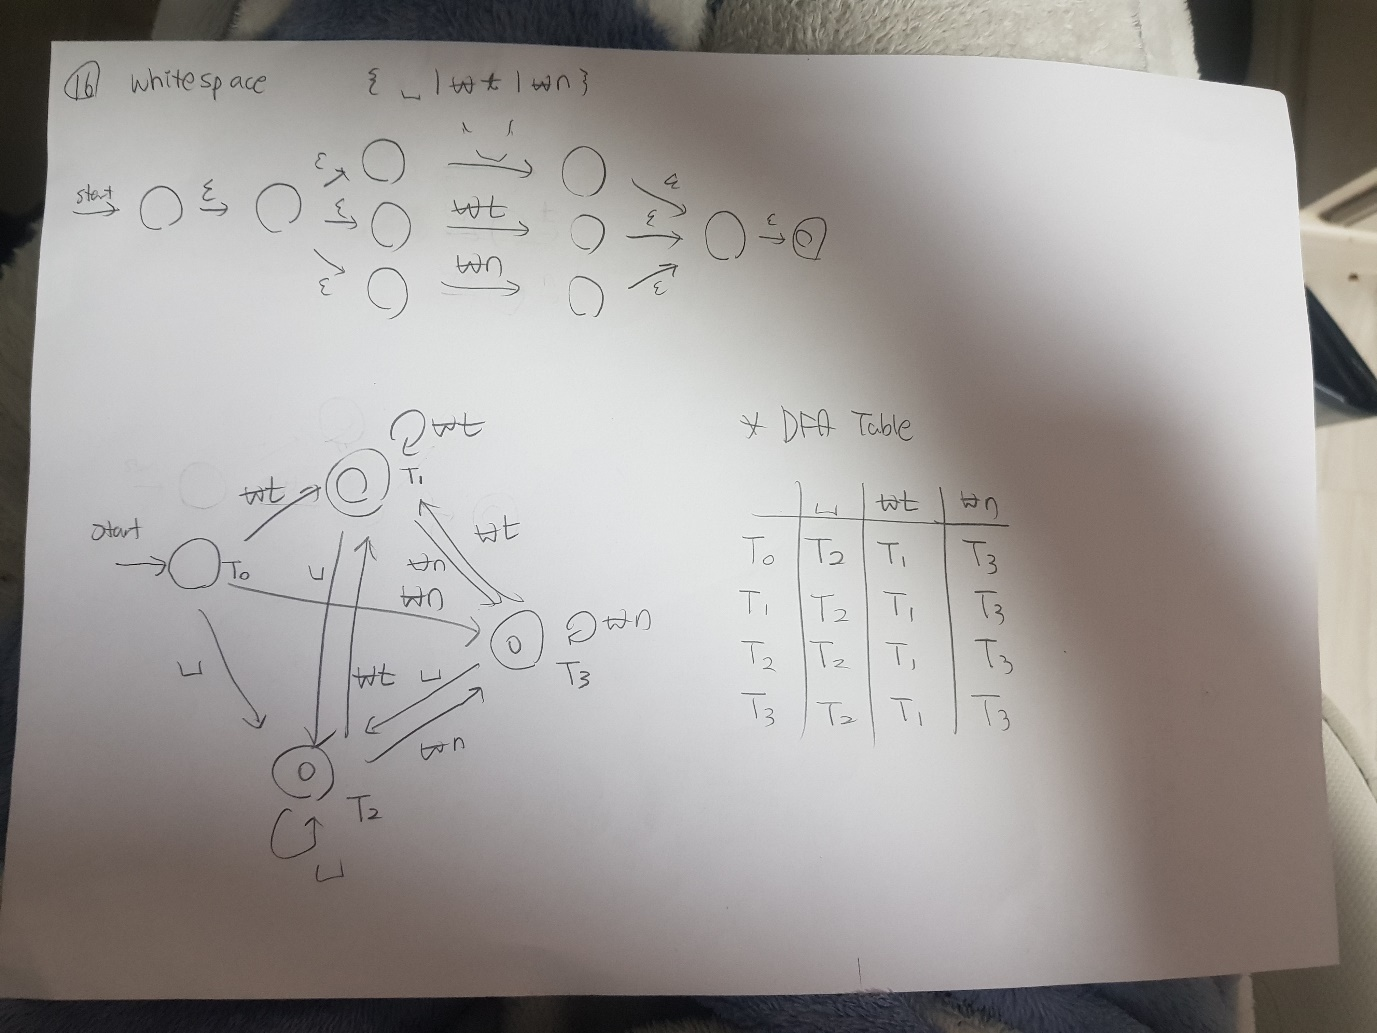 ⑯ whitespace { ␣ | ₩t | ₩n }
ε ' ␣ ' ε
start ε ε ₩t ε ε
ε ₩n ε
₩t
T₁
₩t
₩t
start
T₀ ␣ ₩n
₩n
₩n
T₃
␣ ₩t ␣
₩n
T₂
␣
* DFA Table
␣ ₩t ₩n
T₀ T₂ T₁ T₃
T₁ T₂ T₁ T₃
T₂ T₂ T₁ T₃
T₃ T₂ T₁ T₃